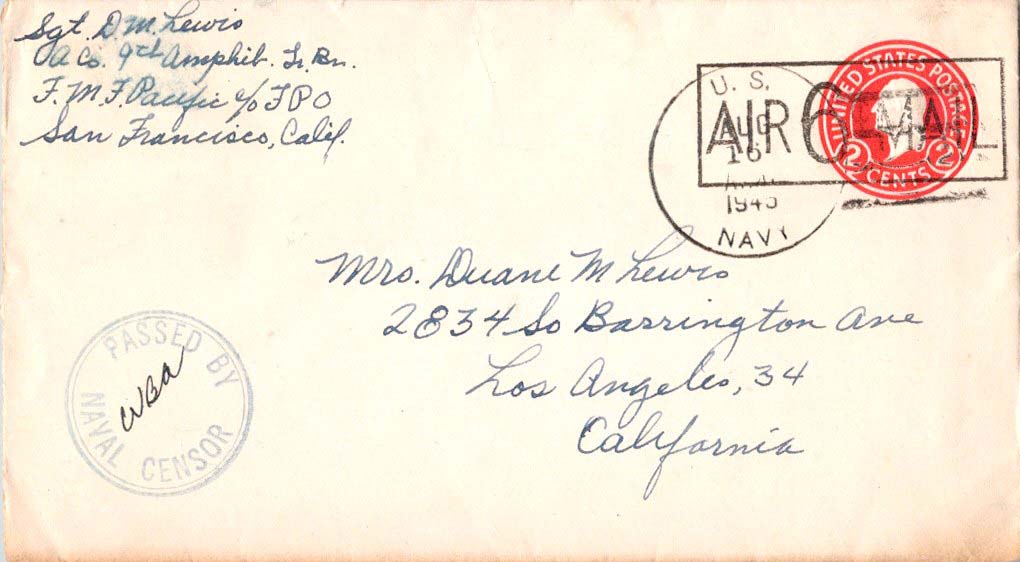 Sgt. D. M. Lewis
A Co. 9th Amphib. Tr. Bn.
F. M. F. Pacific c/o FPO
San Francisco, Calif.
U. S.
AUG
16
1945
NAVY
AIR 6¢ MAIL
UNITED STATES POSTAGE
2 CENTS 2
Mrs. Duane M Lewis
2834 So Barrington Ave
Los Angeles, 34
California
PASSED BY
WBA
NAVAL CENSOR